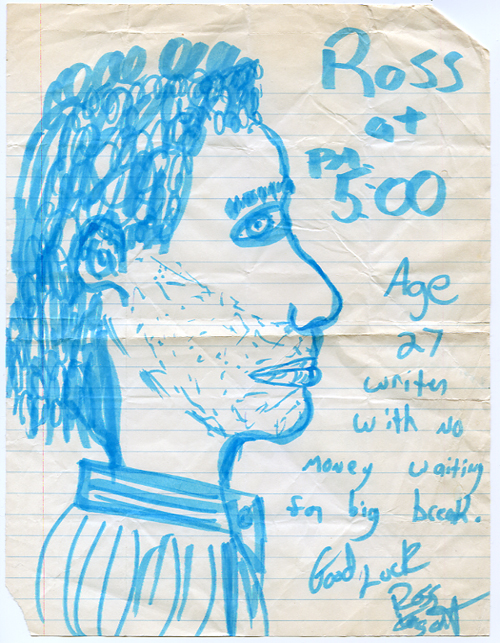 Ross
at
PM
5:00
Age
27
writer
with no
money waiting
for big break.
Good Luck
Ross